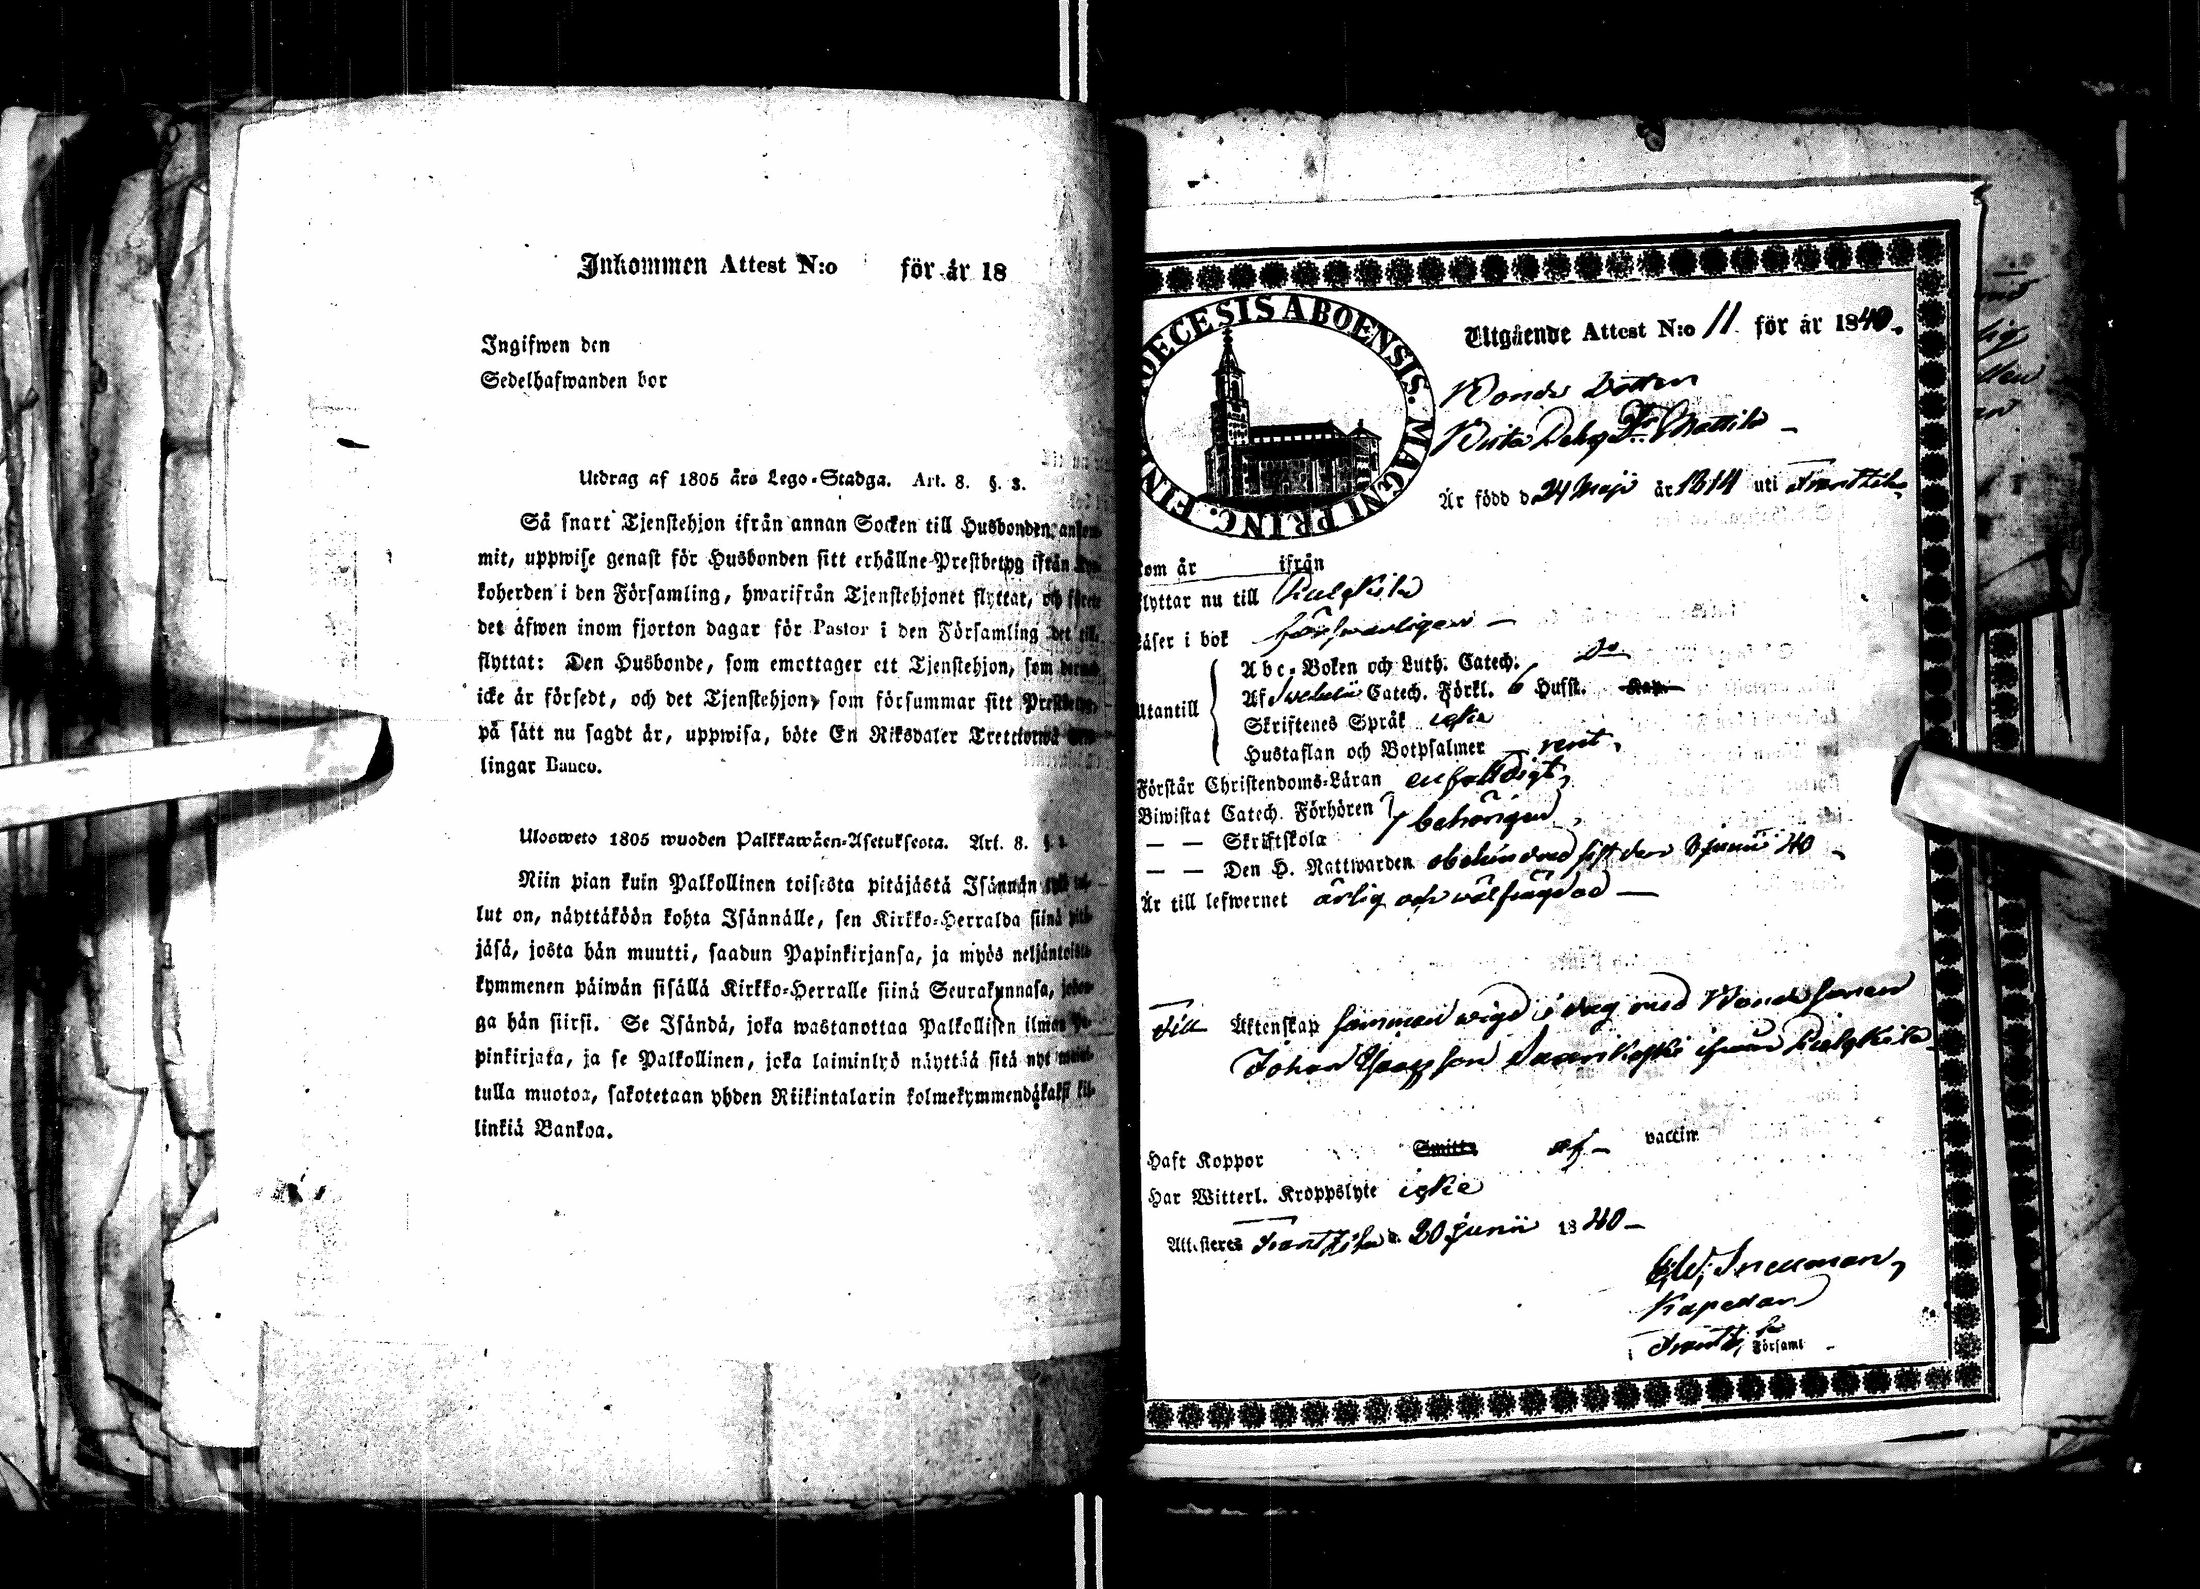 Inkommen Attest N:o för år 18
Ingifwen den
Sedelhafwanden bor
Utdrag af 1805 års Lego-Stadga. Art. 8. §. 3.
Så snart Tjenstehjon ifrån annan Socken till Husbonden
mit, uppwise genast för Husbonden sitt erhållne Prestbetyg ifrån
koherden i den Församling, hwarifrån Tjenstehjonet flyttat, och
det äfwen inom fjorton dagar för Pastor i den Församling det till
flyttat: Den Husbonde, som emottager ett Tjenstehjon, som
icke är försedt, och det Tjenstehjon, som försummar sitt
på sätt nu sagdt är, uppwisa, böte En Riksdaler
lingar Banco.
Ulosweto 1805 wuoden Palkkawäen-Asetuksesta. Art. 8. §.
Niin pian kuin Palkollinen toisesta pitäjästä Isännän
lut on, näyttäköön kohta Isännälle, sen Kirkko-Herralda siinä
jäsä, josta hän muutti, saadun Papinkirjansa, ja myös
kymmenen päiwän sisällä Kirkko-Herralle siinä Seurakunnasa,
ga hän siirsi. Se Isändä, joka wastanottaa Palkollisen ilman
pinkirjata, ja se Palkollinen, joka laiminlyö näyttää sitä nyt
tulla muotoa, sakotetaan yhden Riikintalarin kolmekymmendäkaksi kil-
linkiä Bankoa.
DIOECESIS ABOENSIS. MAGNI PRINC. FINL
Utgående Attest N:o 11 för år 1840.
Bonde Dottren
Är född d 24 Maji år 1814 uti Frantsila
kom år ifrån
flyttar nu till Pulkkila
Läser i bok försvarligen –
Utantill
Abc-Boken och Luth. Catech. Do
Af Svebelii Catech. Förkl. 6 Hufst. Kap.
Skriftenes Språk icke
Hustaflan och Botpsalmer – rent,
Förstår Christendoms-Läran enfaldigt,
Biwistat Catech. Förhören } behörigen,
— — Skriftskola
— — Den H. Nattwarden obehindrad sist den 8 junii 40 –
Är till lefwernet ärlig och välfrägdad —
Till Äktenskap sammanvigd i dag med Bonde sonen
Johan ifrån Pulkkila
Haft Koppor Smitta af – vaccin
Har Witterl. Kroppslyte icke
Attesteras Frantsila d. 20 junii 1840 –
Kapellan
Församl